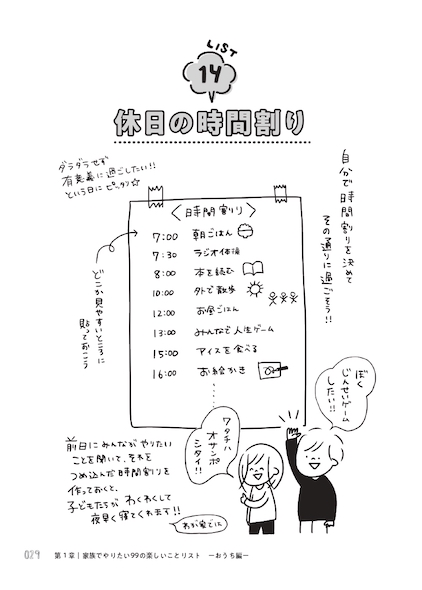 LIST
14
休日の時間割り
ダラダラせず
有意義に過ごしたい!!
という日にピッタリ☆
自分で時間割りを決めて
その通りに過ごそう!!
〈時間割り〉
7:00 朝ごはん
7:30 ラジオ体操
8:00 本を読む
10:00 外で散歩
12:00 お昼ごはん
13:00 みんなで人生ゲーム
15:00 アイスを食べる
16:00 お絵かき
どこか見やすいところに
貼っておこう
ぼく
じんせいゲーム
したい!!
ワタチハ
オサンポ
シタイ!!
前日にみんながやりたい
ことを聞いて、それを
つめ込んだ時間割りを
作っておくと、
子どもたちがわくわくして
夜早く寝てくれます!!
わが家でに
029 第1章|家族でやりたい99の楽しいことリスト ーおうち編ー